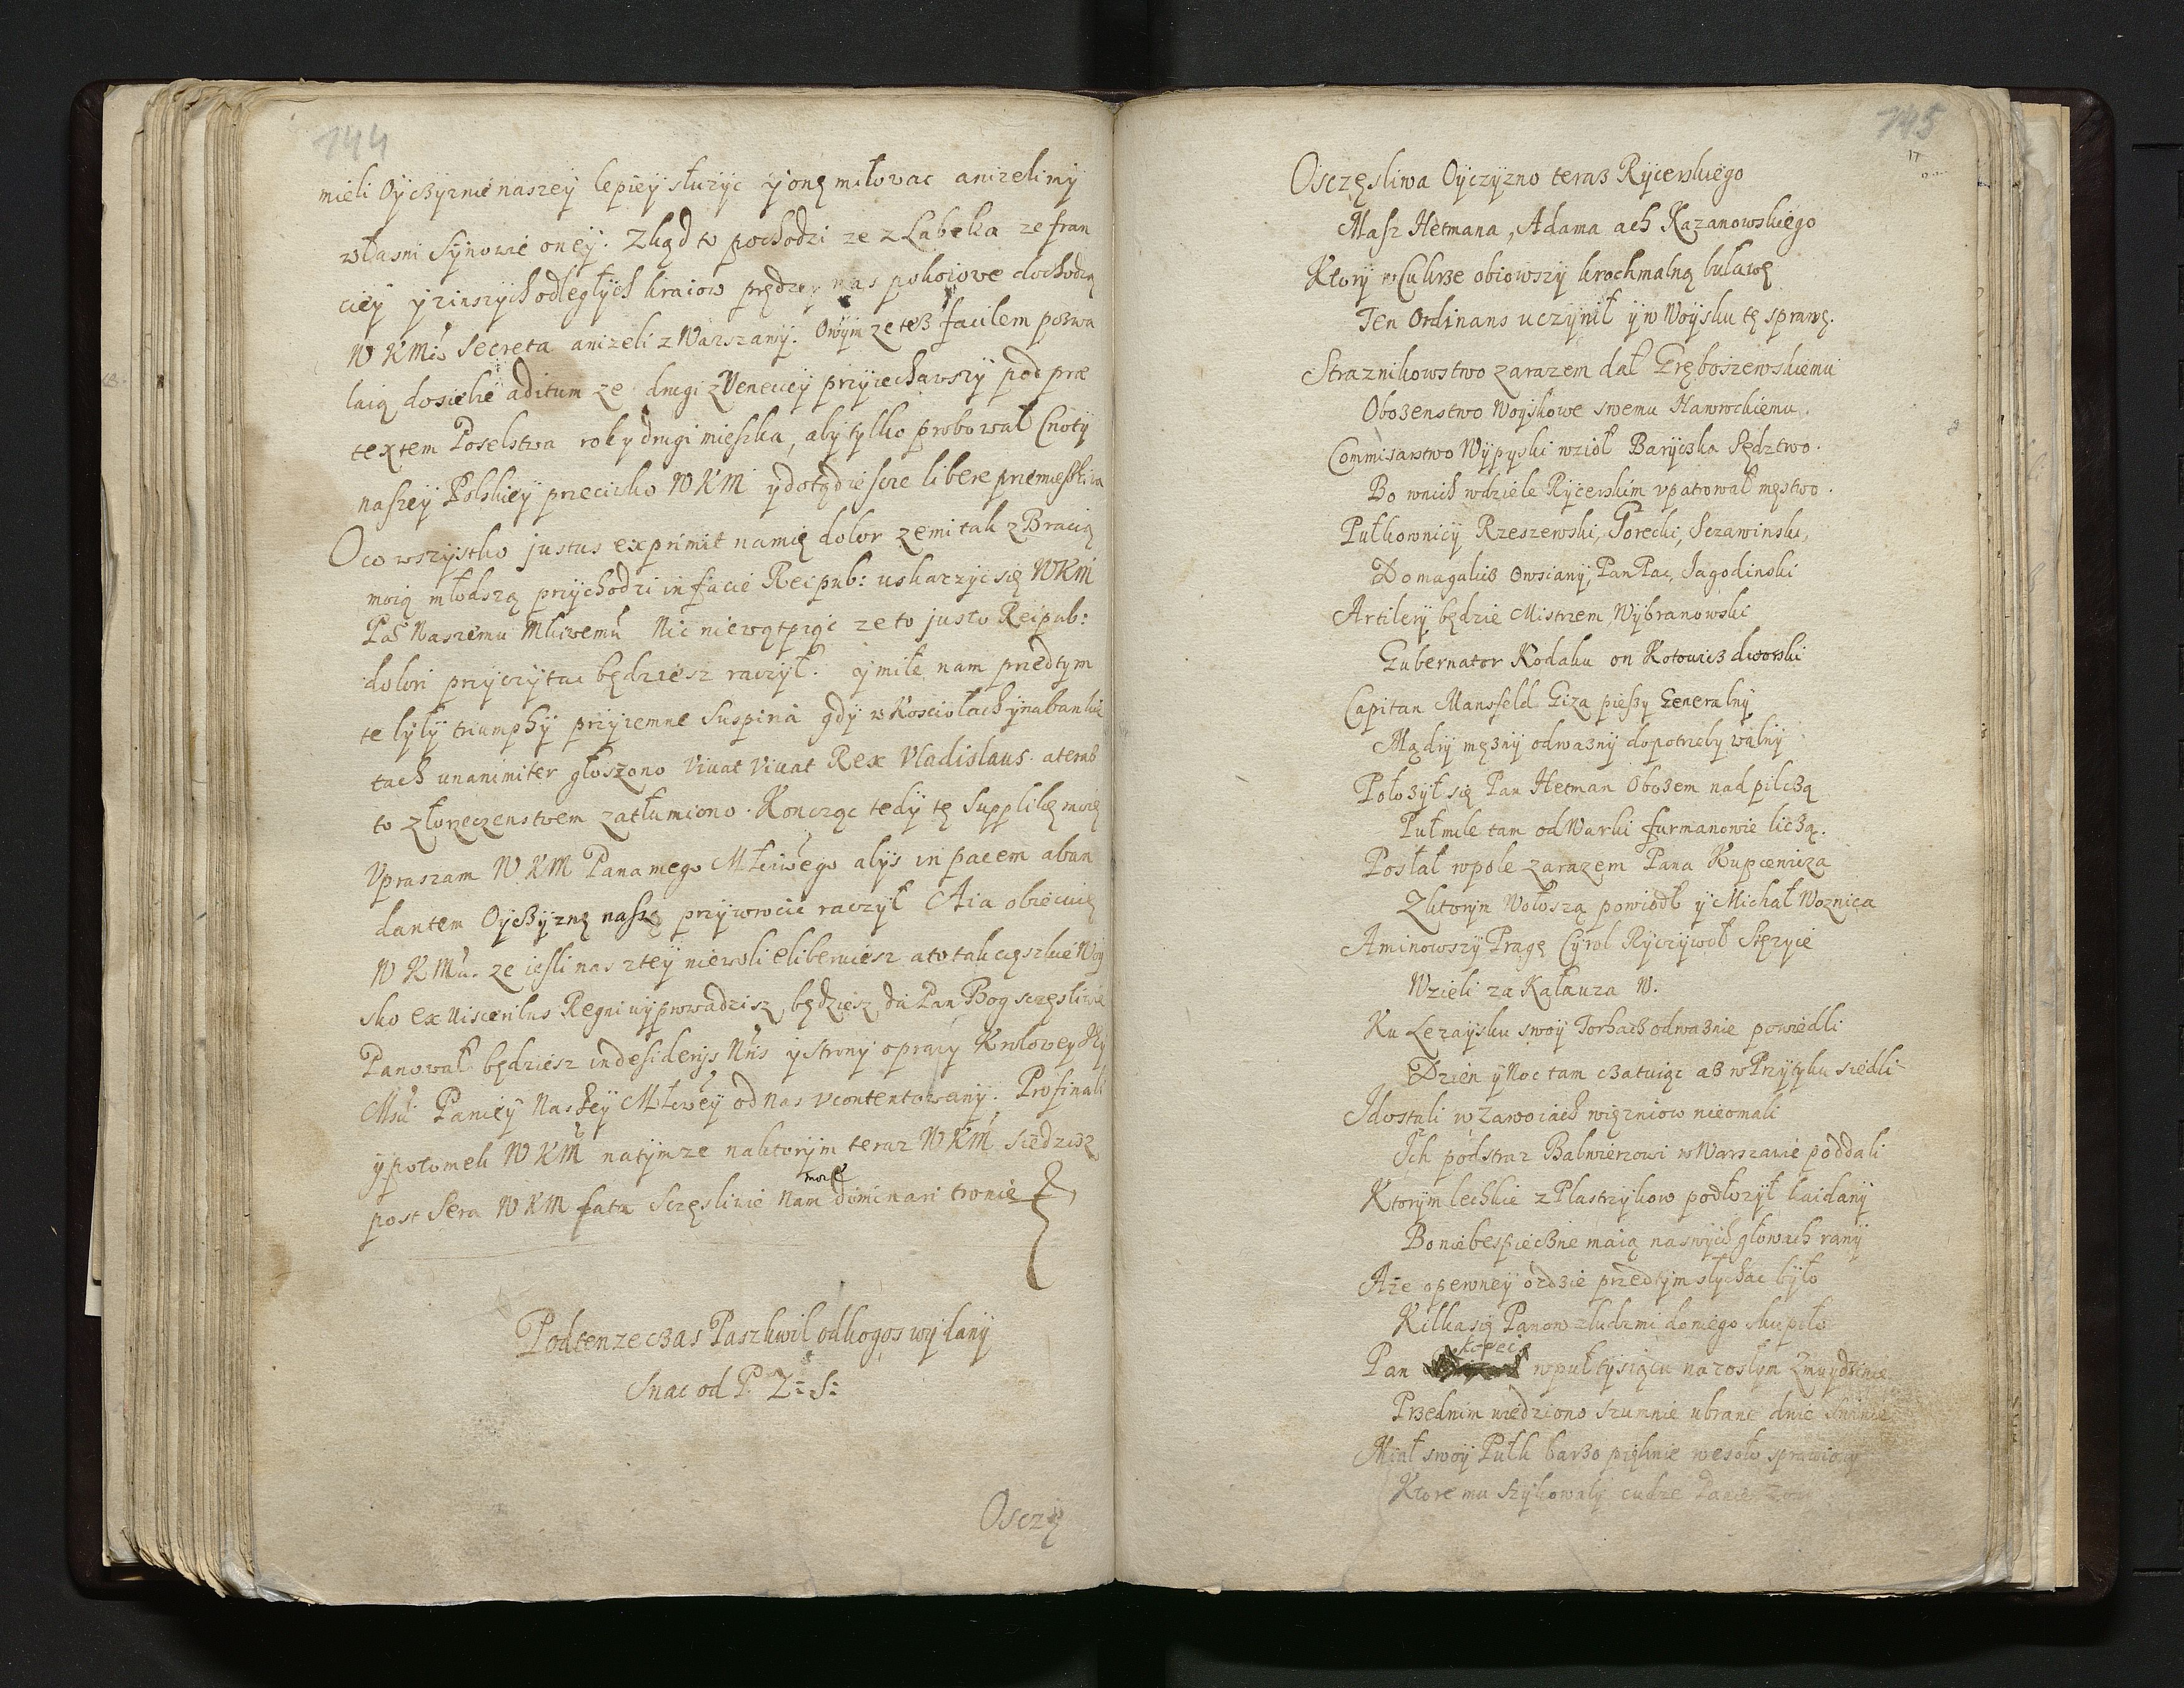 144
mieli Oyczyznie naszey lepiey słuzyc y onę miłowac anizeli my
własni Synowie oney. Zkąd to pochodzi ze z Labeka ze fran
ciey y z inszych odległych kraiow prędzey nas pokoiowe dochodzą
W K Mci Secreta anizeli z Warszawy. Owym ze też facilem pozwa
laią do siebie aditum ze drugi z Veneciey przyiechawszy pod præ
textem Poselstwa rok y drugi mieszka, aby tylko probował Cnoty
naszey Polskiey przeciwko W K M y dotąd ieszcze libere przemieszkiwa
O co wszystko justus exprimit na mię dolor ze mi tak z Bracią
moią młodszą przychodzi in facie Reipub: uskarzyc się WKM
Pa Naszemu Mciwemu Nic niewątpiąc ze to justo Reipub:
dolori przyczytac będziesz raczył. y miłe nam przedtym
te były triumphy przyiemne Suspiria gdy w Kosciołach y na bankie
tach unanimiter głoszono Vivat Vivat Rex Vladislaus. a teraz
to złorzeczenstwem zatłumiono. Koncząc tedy tę Supplikę moię
Upraszam W K M Pana mego Mciwego abys in pacem abun
dantem Oyczyznę naszę przywrocic raczył A ia obiecuię
W K M. ze iesli nas z tey niewoli eliberuiesz a to tak cięszkie Woy
sko ex visceribus Regni wyprowadzisz, będziesz da Pan Bog sczęsliwie
Panował będziesz in desiderys Nris y strony oprawy Krolowey Jey
Mci Paniey Naszey Mciwey od nas ucontentowany. Pro finali
y potomek W K M na tymze na ktorym teraz W K M siedzisz
post Sera W K M fata Sczęsliwie Nam more dominari tronie
Podtenze czas Paszkwil od kogos wydany
Snac od P. Z: S:
Osczę
145
17
Osczęsliwa Oyczyzno teraz Rycerskiego
Masz Hetmana, Adama ach Kazanowskiego
Ktory w Cukrze obiowszy krochmalną buławę
Ten Ordinans uczynił y w Woysku tę sprawę.
Straznikowstwo zarazem dał Gręboszewskiemu
Obozenstwo Woyskowe swemu Nawrockiemu.
Commisarstwo Wypyski wziął Baryczka Sędztwo.
Bo w nich w dziele Rycerskim upatrował męstwo.
Pułkownicy Rzeszewski, Gorecki, Sczawinski,
Domagalicz Owsiany, Pan Pac, Jagodinski
Artilery będzie Mistrzem Wybranowski
Gubernator Kodaku on Kotowicz dworski
Capitan Mansfeld Giza pieszy Generalny
Mądry mężny odważny do potrzeby walny
Położył się Pan Hetman Obozem nad pilczą
Puł mile tam od Warki furmanowie liczą.
Posłał w pole zarazem Pana Kupcewicza
Z ktorym Wołoszą powiodł y Michał Woznica
A minowszy Pragę Cyrol Ryczywoł Stęzyce
Wzieli za Katauza W.
Ku Lezaysku swoy Torhach odważnie powiedli
Dzien y Noc tam czatuiąc aż w Przytyku siedli
J dostali w zawoiach więzniow nieomali
Jch pod straz Balwierzowi w Warszawie poddali
Ktorym lechkie z Plastrzykow podłozył kaidany
Bo niebespieczne maią na swych głowach rany
A że o pewney ordzie przedtym słychac było
Kilka się Panow z ludzmi do niego skupiło
Pan Kopec w puł tysiącu na rosłym Zmuydzinie
Przednim wiedziono szumnie ubrane dwie Swinie
Miał swoy Pułk barzo pięknie wesoło sprawiony
Ktore mu szykowały cudze Panie